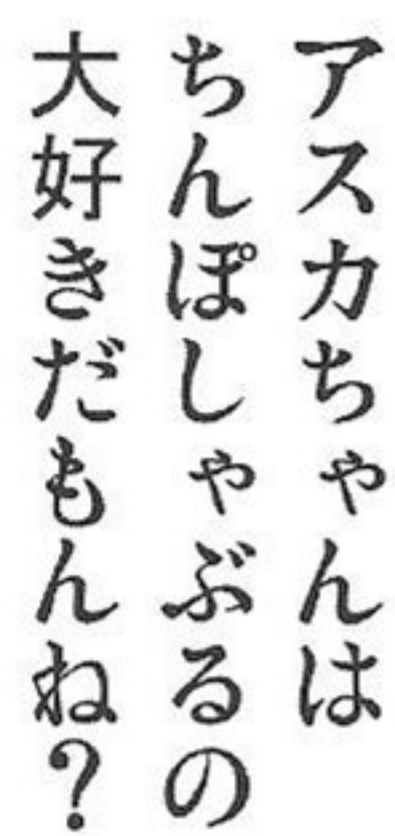 アスカちゃんは
ちんぽしゃぶるの
大好きだもんね？